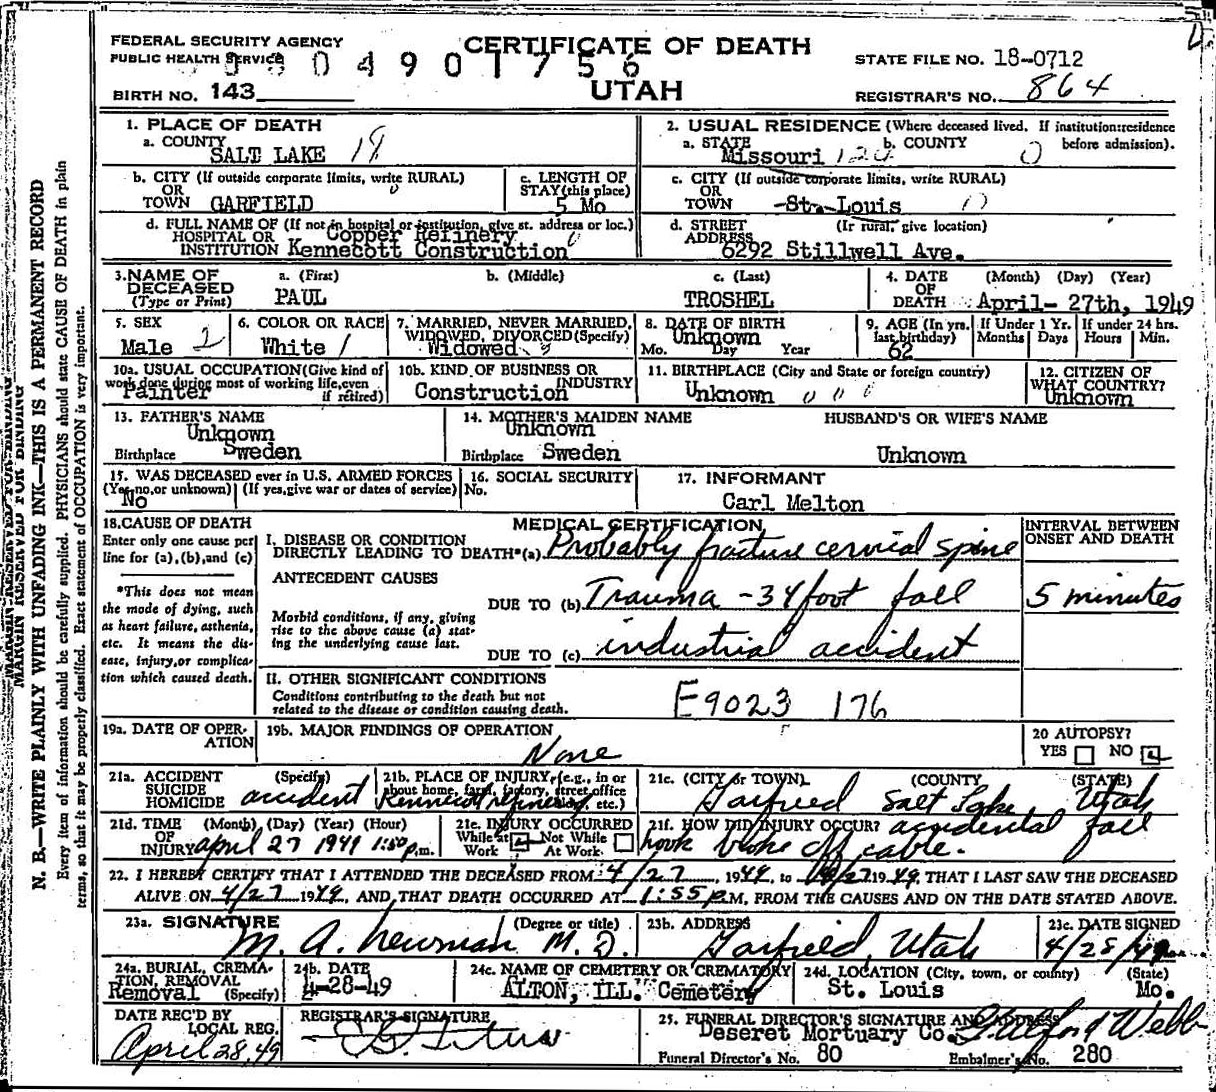 FEDERAL SECURITY AGENCY
PUBLIC HEALTH SERVICE
CERTIFICATE OF DEATH
0 4 9 0 1 7 5 6
UTAH
STATE FILE NO. 18-0712
BIRTH NO. 143
REGISTRAR'S NO. 864
1. PLACE OF DEATH
a. COUNTY
SALT LAKE 19
2. USUAL RESIDENCE (Where deceased lived. If institution:residence before admission).
a. STATE b. COUNTY
Missouri
b. CITY (If outside corporate limits, write RURAL)
OR
TOWN GARFIELD
c. LENGTH OF
STAY (this place)
5 Mo
c. CITY (If outside corporate limits, write RURAL)
OR
TOWN St. Louis
d. FULL NAME OF (If not in hospital or institution, give st. address or loc.)
HOSPITAL OR Copper Refinery
INSTITUTION Kennecott Construction
d. STREET (If rural, give location)
ADDRESS 6292 Stillwell Ave.
3. NAME OF DECEASED
(Type or Print)
a. (First) b. (Middle) c. (Last)
PAUL TROSHEL
4. DATE OF DEATH (Month) (Day) (Year)
April- 27th, 1949
5. SEX
Male
6. COLOR OR RACE
White
7. MARRIED, NEVER MARRIED, WIDOWED, DIVORCED (Specify)
Widowed
8. DATE OF BIRTH
Unknown
Mo. Day Year
9. AGE (In yrs. last birthday)
62
If Under 1 Yr.
Months Days
If under 24 hrs.
Hours Min.
10a. USUAL OCCUPATION (Give kind of work done during most of working life, even if retired)
Painter
10b. KIND OF BUSINESS OR INDUSTRY
Construction
11. BIRTHPLACE (City and State or foreign country)
Unknown
12. CITIZEN OF WHAT COUNTRY?
Unknown
13. FATHER'S NAME
Unknown
Birthplace Sweden
14. MOTHER'S MAIDEN NAME
Unknown
Birthplace Sweden
HUSBAND'S OR WIFE'S NAME
Unknown
15. WAS DECEASED ever in U.S. ARMED FORCES
(Yes, no, or unknown) (If yes, give war or dates of service)
No
16. SOCIAL SECURITY
No.
17. INFORMANT
Carl Melton
18. CAUSE OF DEATH
Enter only one cause per
line for (a), (b), and (c)
*This does not mean
the mode of dying, such
as heart failure, asthenia,
etc. It means the dis-
ease, injury, or complica-
tion which caused death.
MEDICAL CERTIFICATION
I. DISEASE OR CONDITION
DIRECTLY LEADING TO DEATH*(a) Probably fracture cervical spine
ANTECEDENT CAUSES
DUE TO (b) Trauma - 34 foot fall
Morbid conditions, if any, giving
rise to the above cause (a) stat-
ing the underlying cause last.
DUE TO (c) industrial accident
INTERVAL BETWEEN
ONSET AND DEATH
5 minutes
II. OTHER SIGNIFICANT CONDITIONS
Conditions contributing to the death but not
related to the disease or condition causing death.
E9023 176
19a. DATE OF OPER-
ATION
19b. MAJOR FINDINGS OF OPERATION
None
20 AUTOPSY?
YES NO
21a. ACCIDENT (Specify)
SUICIDE
HOMICIDE accident
21b. PLACE OF INJURY (e.g., in or
about home, farm, factory, street, office
bldg., etc.)
Kennecott refinery
21c. (CITY or TOWN) (COUNTY (STATE)
Garfield Salt Lake Utah
21d. TIME (Month) (Day) (Year) (Hour)
OF
INJURY April 27 1949 1:50 p.m.
21e. INJURY OCCURRED
While at Work Not While At Work
21f. HOW DID INJURY OCCUR? accidental fall
hook broke off cable.
22. I HEREBY CERTIFY THAT I ATTENDED THE DECEASED FROM 4/27, 1949, to 4/27 1949, THAT I LAST SAW THE DECEASED
ALIVE ON 4/27 1949, AND THAT DEATH OCCURRED AT 1:55 P.M, FROM THE CAUSES AND ON THE DATE STATED ABOVE.
23a. SIGNATURE (Degree or title)
M. A. Newman M.D.
23b. ADDRESS
Garfield, Utah
23c. DATE SIGNED
4/28/49
24a. BURIAL, CREMA-
TION, REMOVAL
Removal (Specify)
24b. DATE
4-28-49
24c. NAME OF CEMETERY OR CREMATORY
ALTON, ILL. Cemetery
24d. LOCATION (City, town, or county) (State)
St. Louis Mo.
DATE REC'D BY
LOCAL REG.
April 28, 49
REGISTRAR'S SIGNATURE
25. FUNERAL DIRECTOR'S SIGNATURE AND ADDRESS
Deseret Mortuary Co. Guilford Webb
Funeral Director's No. 80 Embalmer's No. 280
MARGIN RESERVED FOR BINDING
N. B.—WRITE PLAINLY WITH UNFADING INK—THIS IS A PERMANENT RECORD
Every item of information should be carefully supplied. PHYSICIANS should state CAUSE OF DEATH in plain
terms, so that it may be properly classified. Exact statement of OCCUPATION is very important.